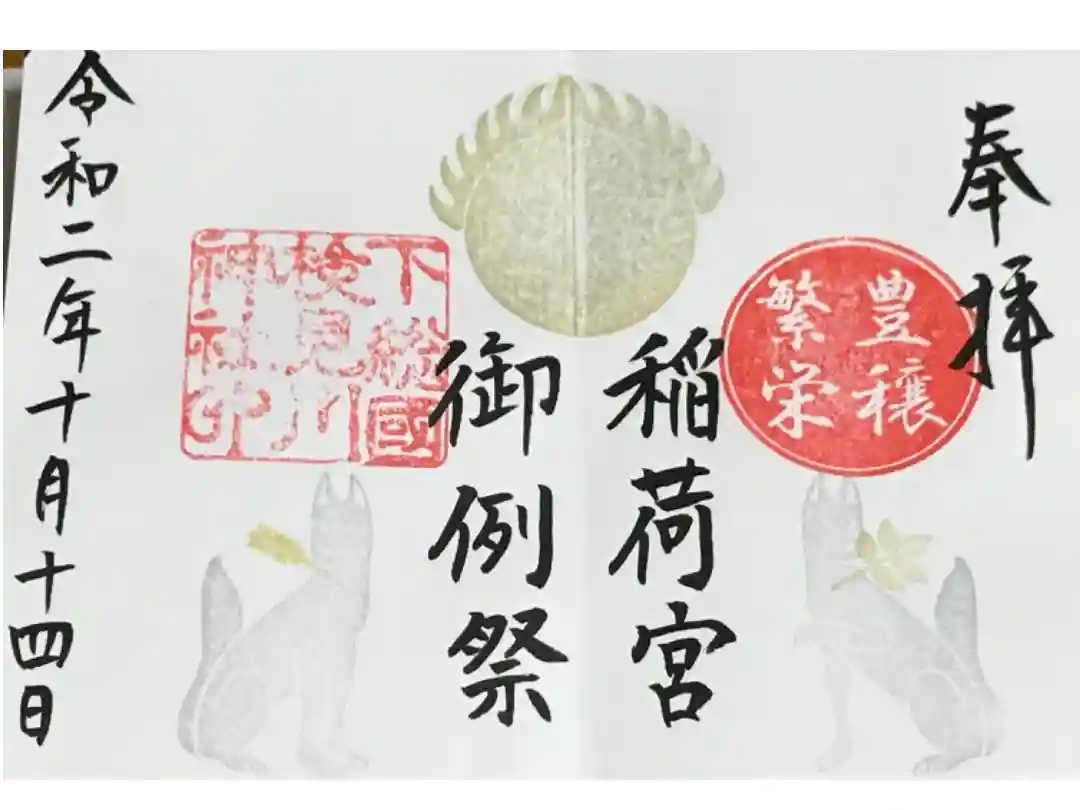 奉拝
豊穣
繁栄
稲荷宮
御例祭
下総國
検見川
神社印
令和二年十月十四日